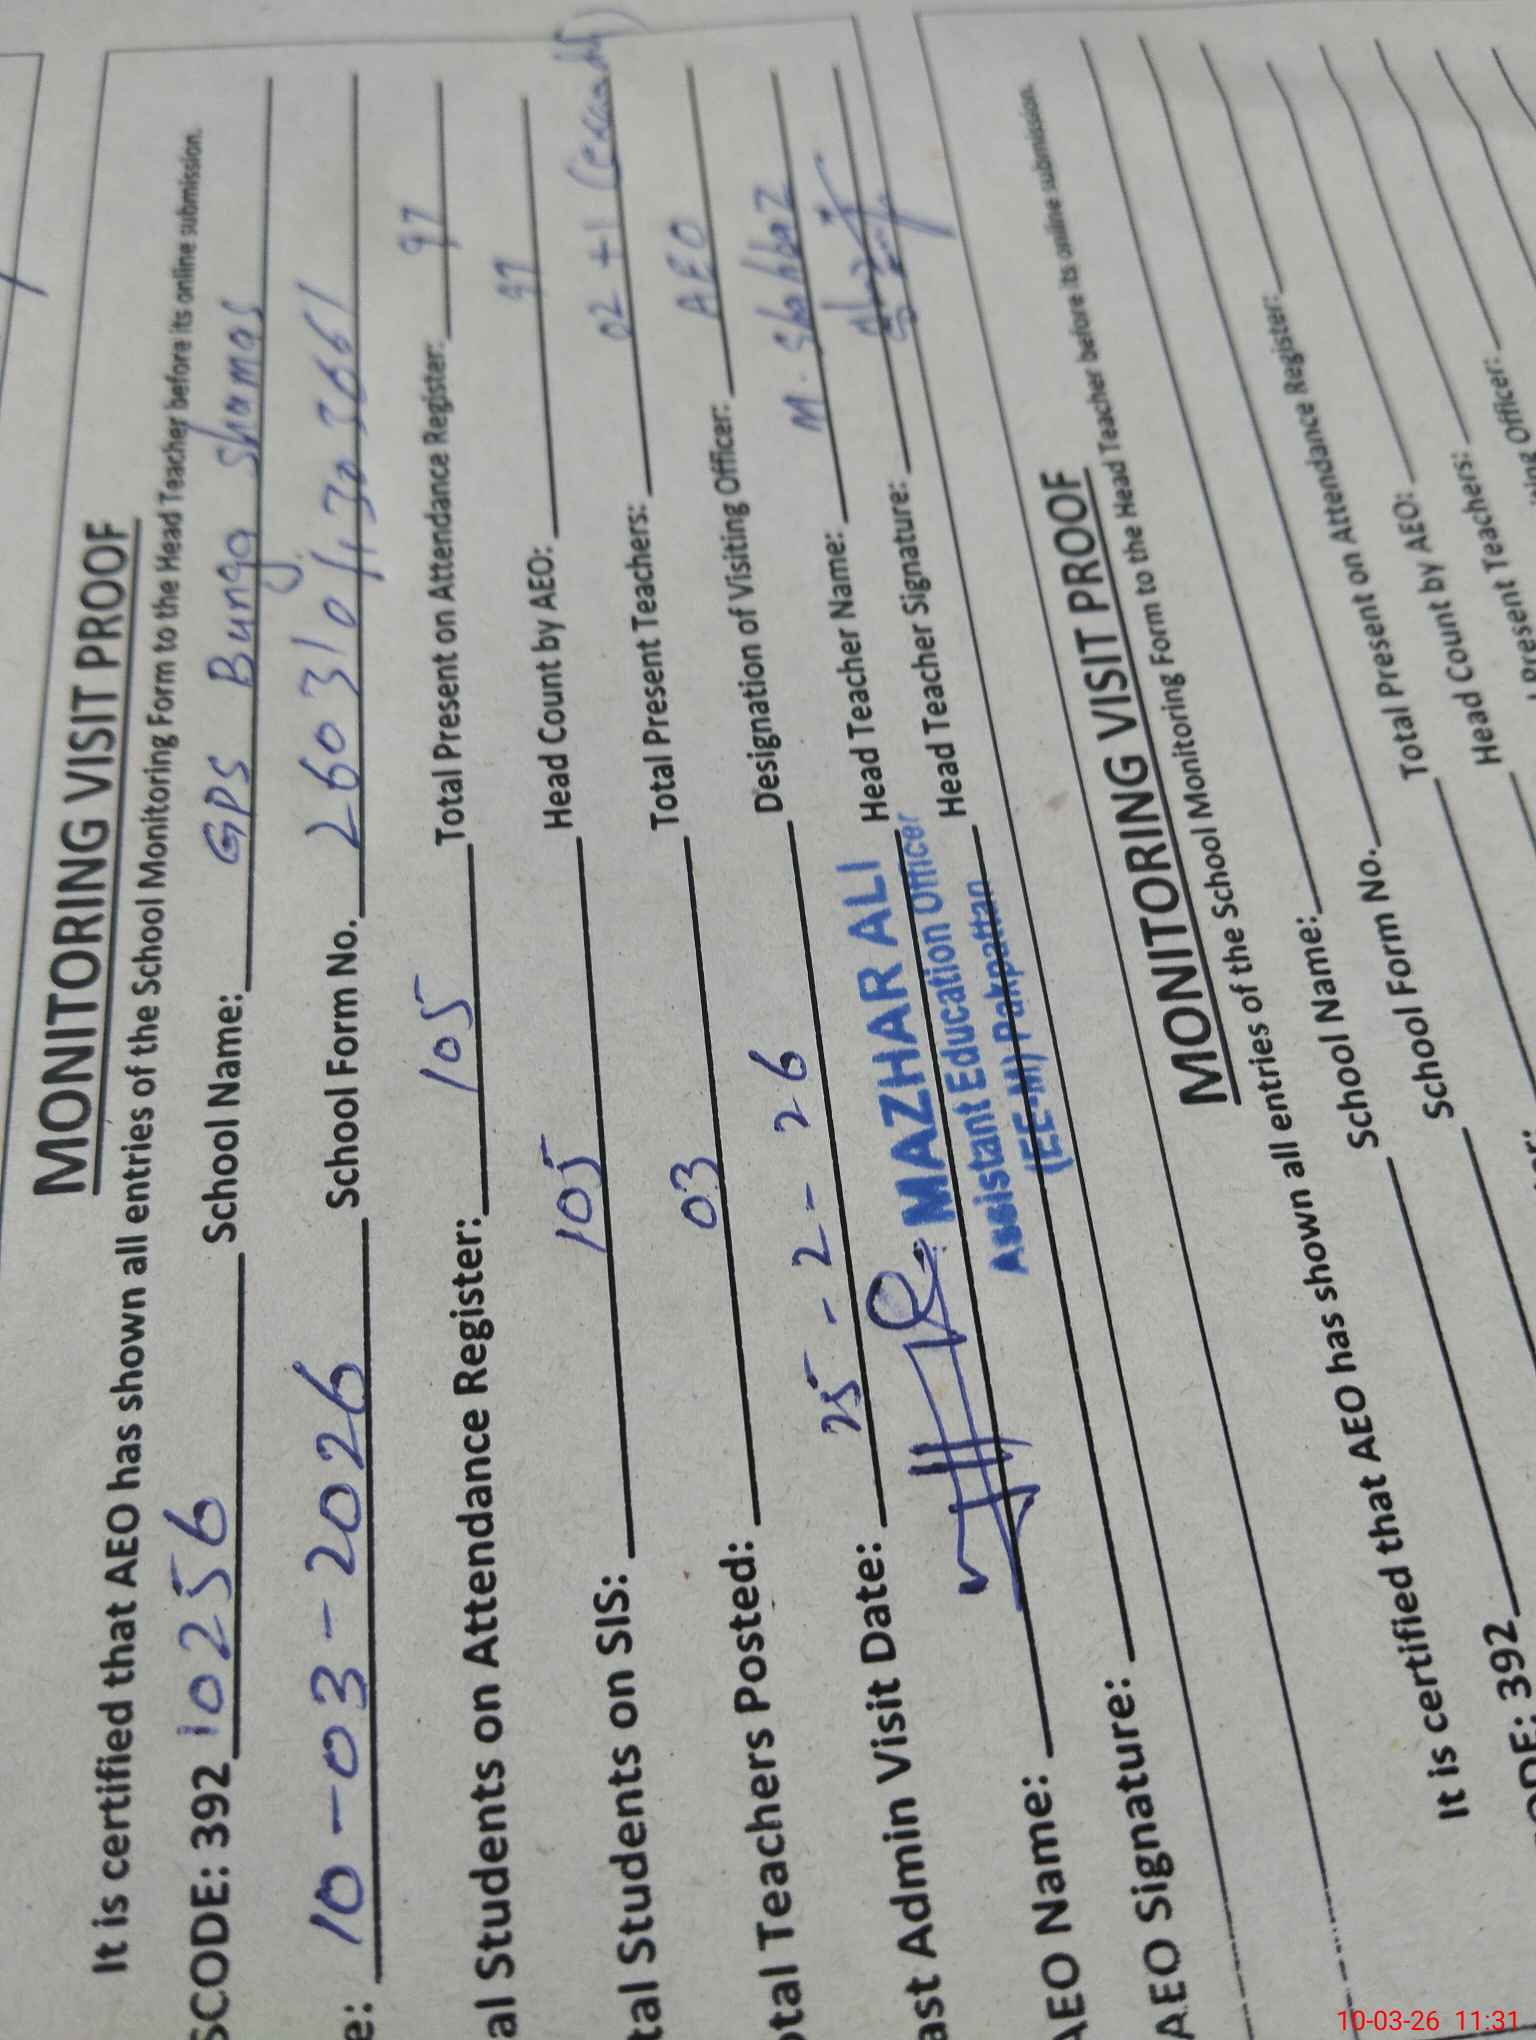 MONITORING VISIT PROOF
It is certified that AEO has shown all entries of the School Monitoring Form to the Head Teacher before its online submission.
SCODE: 392 10256 School Name: GPS Bunga Shamas
e: 10-03-2026 School Form No.
al Students on Attendance Register: 105 Total Present on Attendance Register: 97
tal Students on SIS: 105 Head Count by AEO: 97
otal Teachers Posted: 03 Total Present Teachers: 02 +1
ast Admin Visit Date: 25-2-26 Designation of Visiting Officer: AEO
AEO Name: MAZHAR ALI Head Teacher Name: M. Shahbaz
Assistant Education Officer
(EE-M) Pakpattan
AEO Signature: Head Teacher Signature:
MONITORING VISIT PROOF
It is certified that AEO has shown all entries of the School Monitoring Form to the Head Teacher before its online submission.
ODE: 392 School Name:
School Form No.
Total Present on Attendance Register:
Head Count by AEO:
Present Teachers:
ing Officer:
10-03-26 11:31